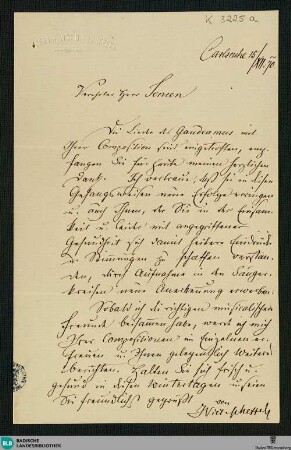 K 3225a
Carlsruhe 15/XII. 70
Verehrter Herr
Die Lieder des Gaudeamus mit
Ihrer Composition sind eingetroffen, em-
pfangen Sie für heute meinen herzlichen
Dank. Ich vertraue, daß sie in diesen
Gesangsweisen neue Erfolge erringen
u. auch Ihnen, der Sie in der Einsam-
keit u. leider mit angegriffener
Gesundheit sich damit heitere
u. Stimmungen zu schaffen verstan-
den, durch Aufnahme in den Sänger-
kreisen neue Anerkennung erwerben.
Sobald ich die richtigen musikalischen
Freunde beisammen habe, werde ich mich
Ihrer Compositionen im Einzelnen er-
freuen u. Ihnen gelegentlich weiter
berichten. Halten Sie sich frisch u.
gesund in diesen Wintertagen u. seien
Sie freundlichst gegrüßt von
Scheffel
BLB
BADISCHE
LANDESBIBLIOTHEK